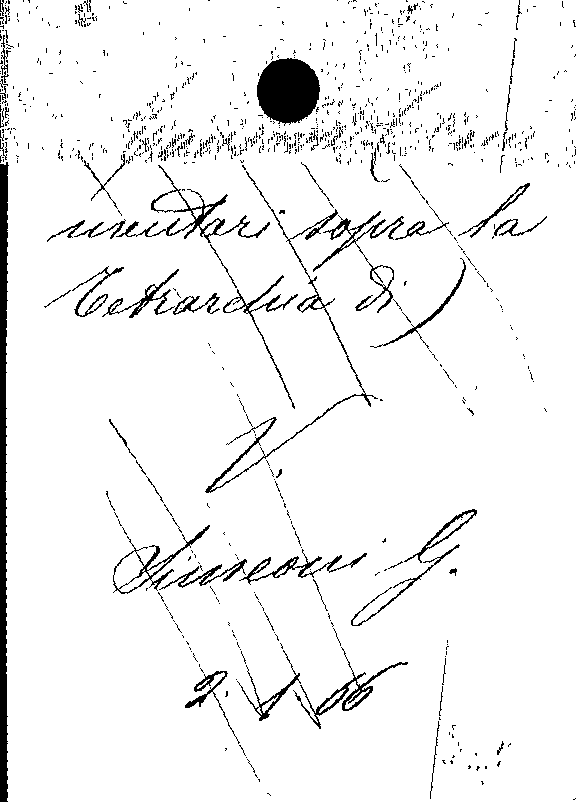 inventari sopra la
Tetrarchia di)
V.
Simeoni G.
2. 1. 66